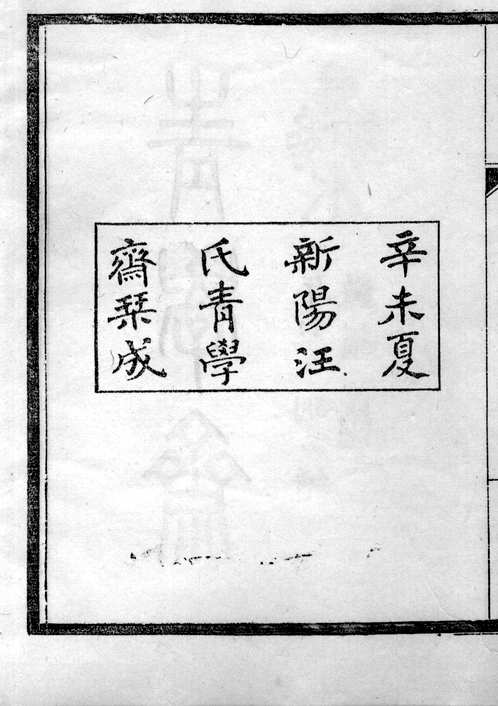 辛未夏
新陽汪
氏青學
齋栞成